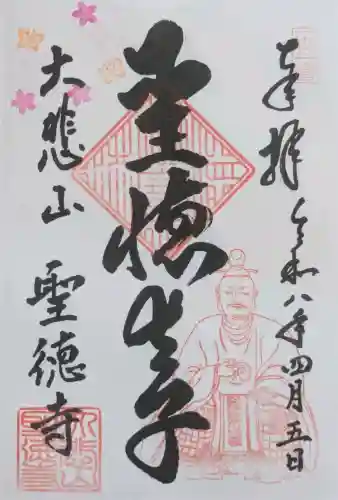 奉拝 令和八年四月五日
聖徳太子
大悲山 聖徳寺